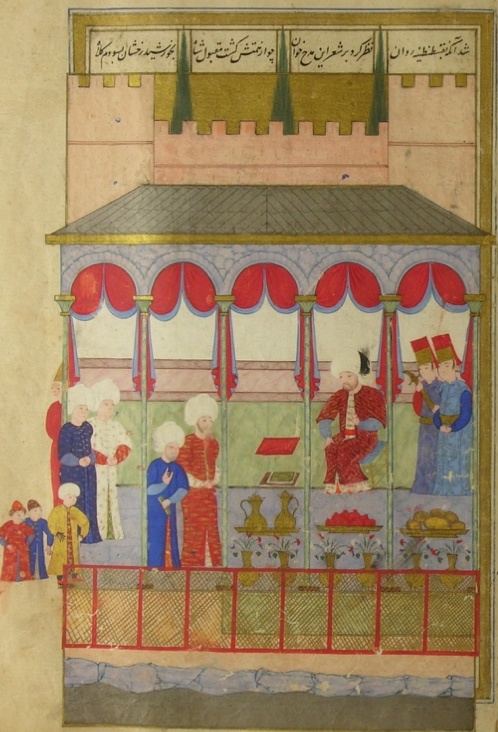 شد آنگه بقسطنطنیه روان نظر کرد بر شعر این مدح خوان چو از همتش گشت مقبول شاه بخورشید رخشان بسودم کلاه